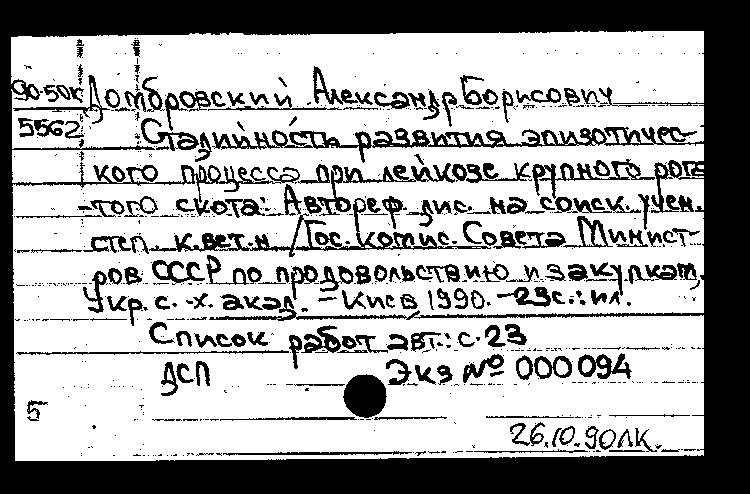 90-50к Домбровский Александр Борисович
5562 Стадийность развития эпизотичес-
кого процесса при лейкозе крупного рога
-того скота: Автореф. дис. на соиск. учен.
степ. к.вет.н /Гос. комис. Совета Минист-
ров СССР по продовольствию и закупкам,
Укр. с.-х. акад. - Киев, 1990. - 23с.: ил.
Список работ авт.: с. 23
ДСП Экз № 000094
5
26.10.90 ЛК.